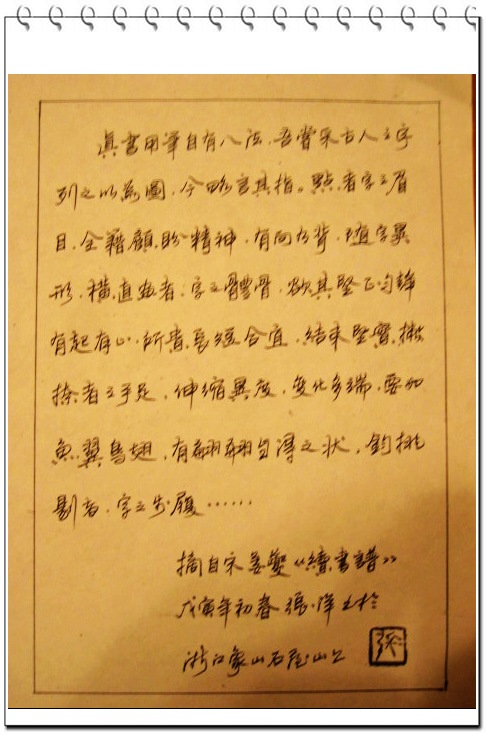 真書用筆自有八法，吾嘗采古人之字
列之以為圖，今略言其指。點者字之眉
目，全藉顧盼精神，有向有背，隨字異
形，橫直畫者，字之體骨，欲其堅正勻靜
有起有止，所貴長短合宜，結束堅實，撇
捺者之手足，伸縮異度，變化多端，要如
魚翼鳥翅，有翩翩自得之状，鉤挑
剔者，字之步履……
摘自宋姜夔《續書譜》
戊寅年初春張洋之於
浙江象山石庭山上
張